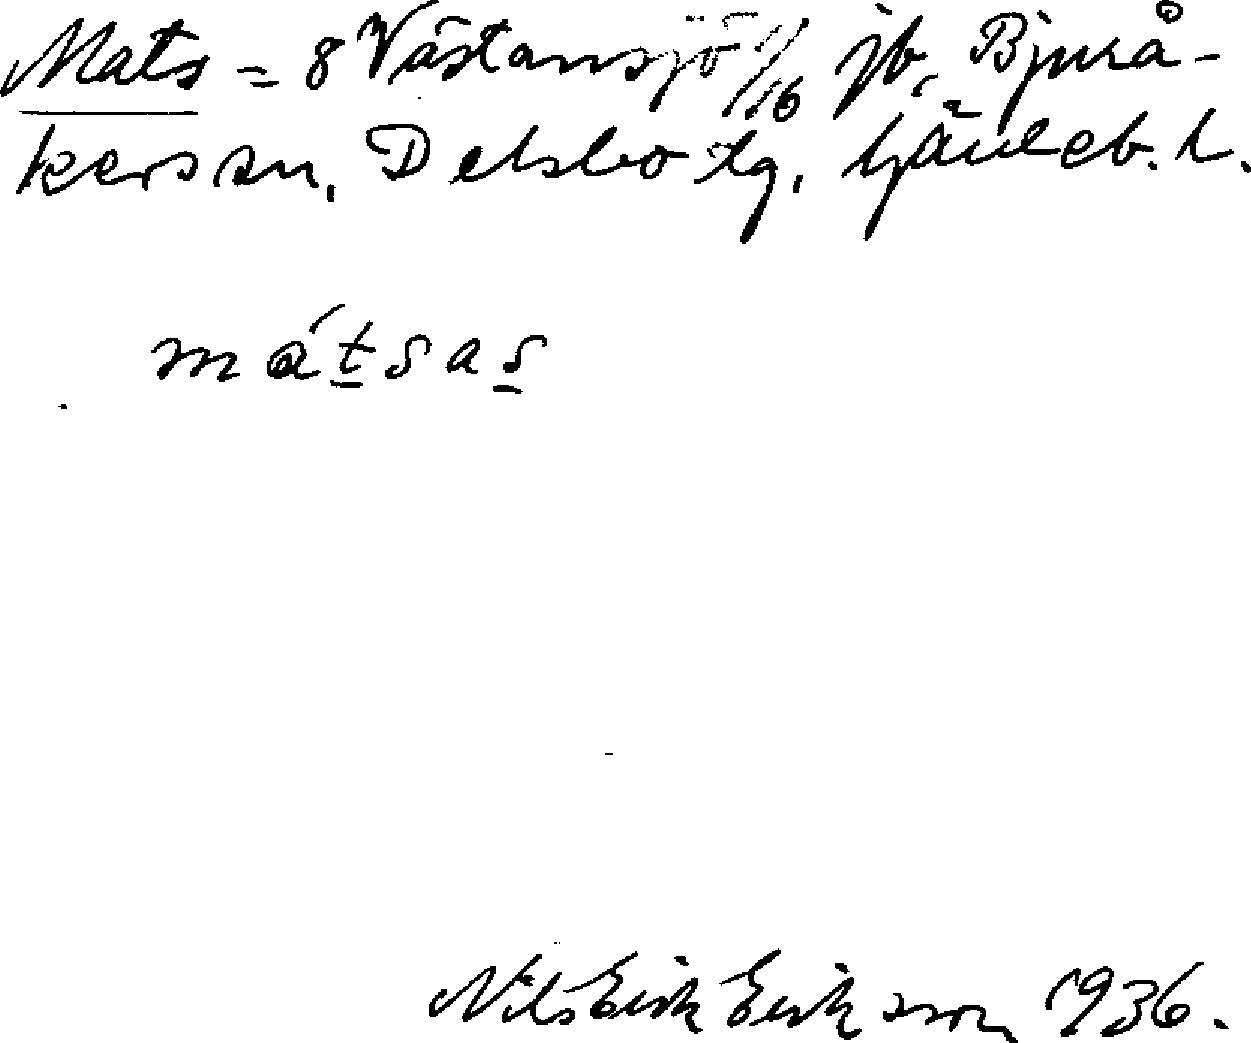 Mats = 8 Västansjö 1/16 jb, Bjurå-
kers sn, Delsbo tg, Gävleb. l.
mátsas
Nils Erik Eriksson 1936.